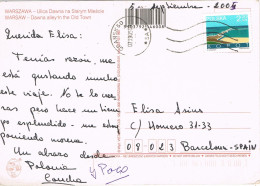 WARSZAWA - Ulica Dawna na Starym Mieście
WARSAW - Dawna alley in the Old Town
5 - septiembre - 2005
Querida Elisa:
Tenías razón, me
está gustando mucho
este viaje. No te lo creerás
pero hace un tiempo
espléndido - me estoy
poniendo morena.
Un abrazo desde
Polonia
Concha y Paco
Elisa Arias
C/ Homero 31-33
08023 Barcelona - SPAIN